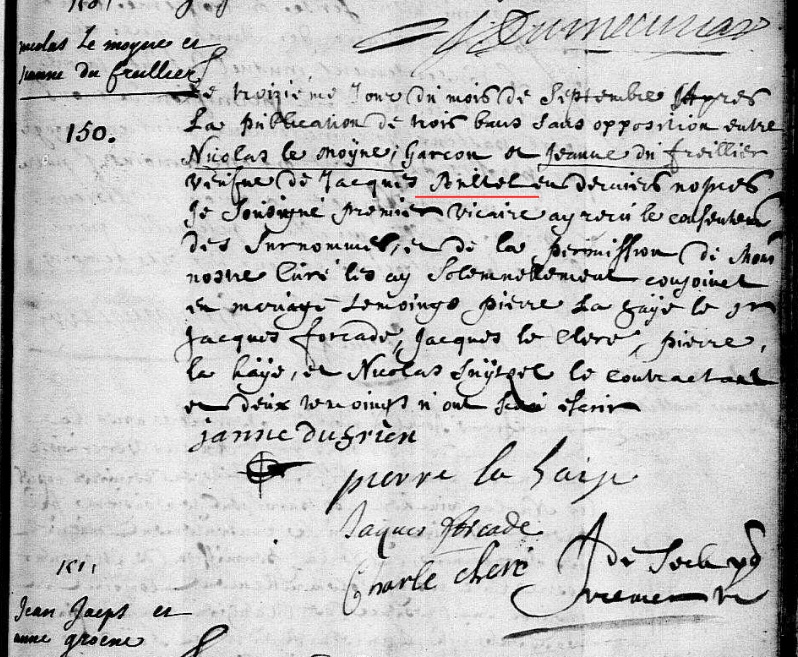 nicolas Le moyne et
jeanne du freillier
150.
Le troizieme Jour du mois de Septembre Apres
La publication de trois bans sans opposition entre
Nicolas le moyne, Garcon et Jeanne du freillier
veufue de Jacques en derniers nopces
Je Sousigné premier vicaire ay receu le consentem
des Surnommes, et de la permission de Mons
nostre Curé les ay Solemnellement conjoinct
en mariage temoings pierre La haye le
Jacques forcade, Jacques le Clerc, pierre,
la haye, et Nicolas le contractant
et deux temoings n'ont sceu escrir
janne dufrien
pierre la haije
Jaques forcade
Charle cherc
de
Jean Jacps et
anne groene